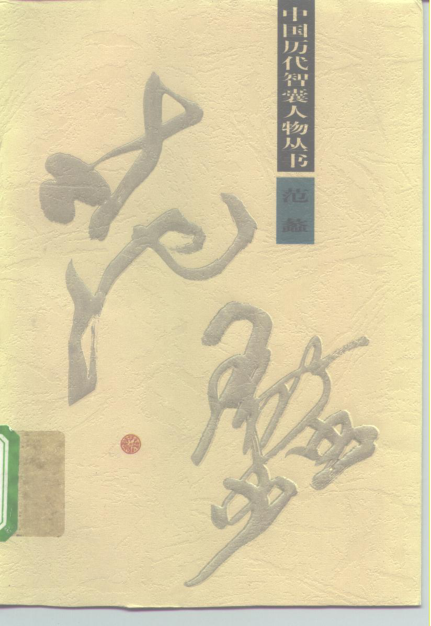 中国历代智囊人物丛书
范蠡
范蠡